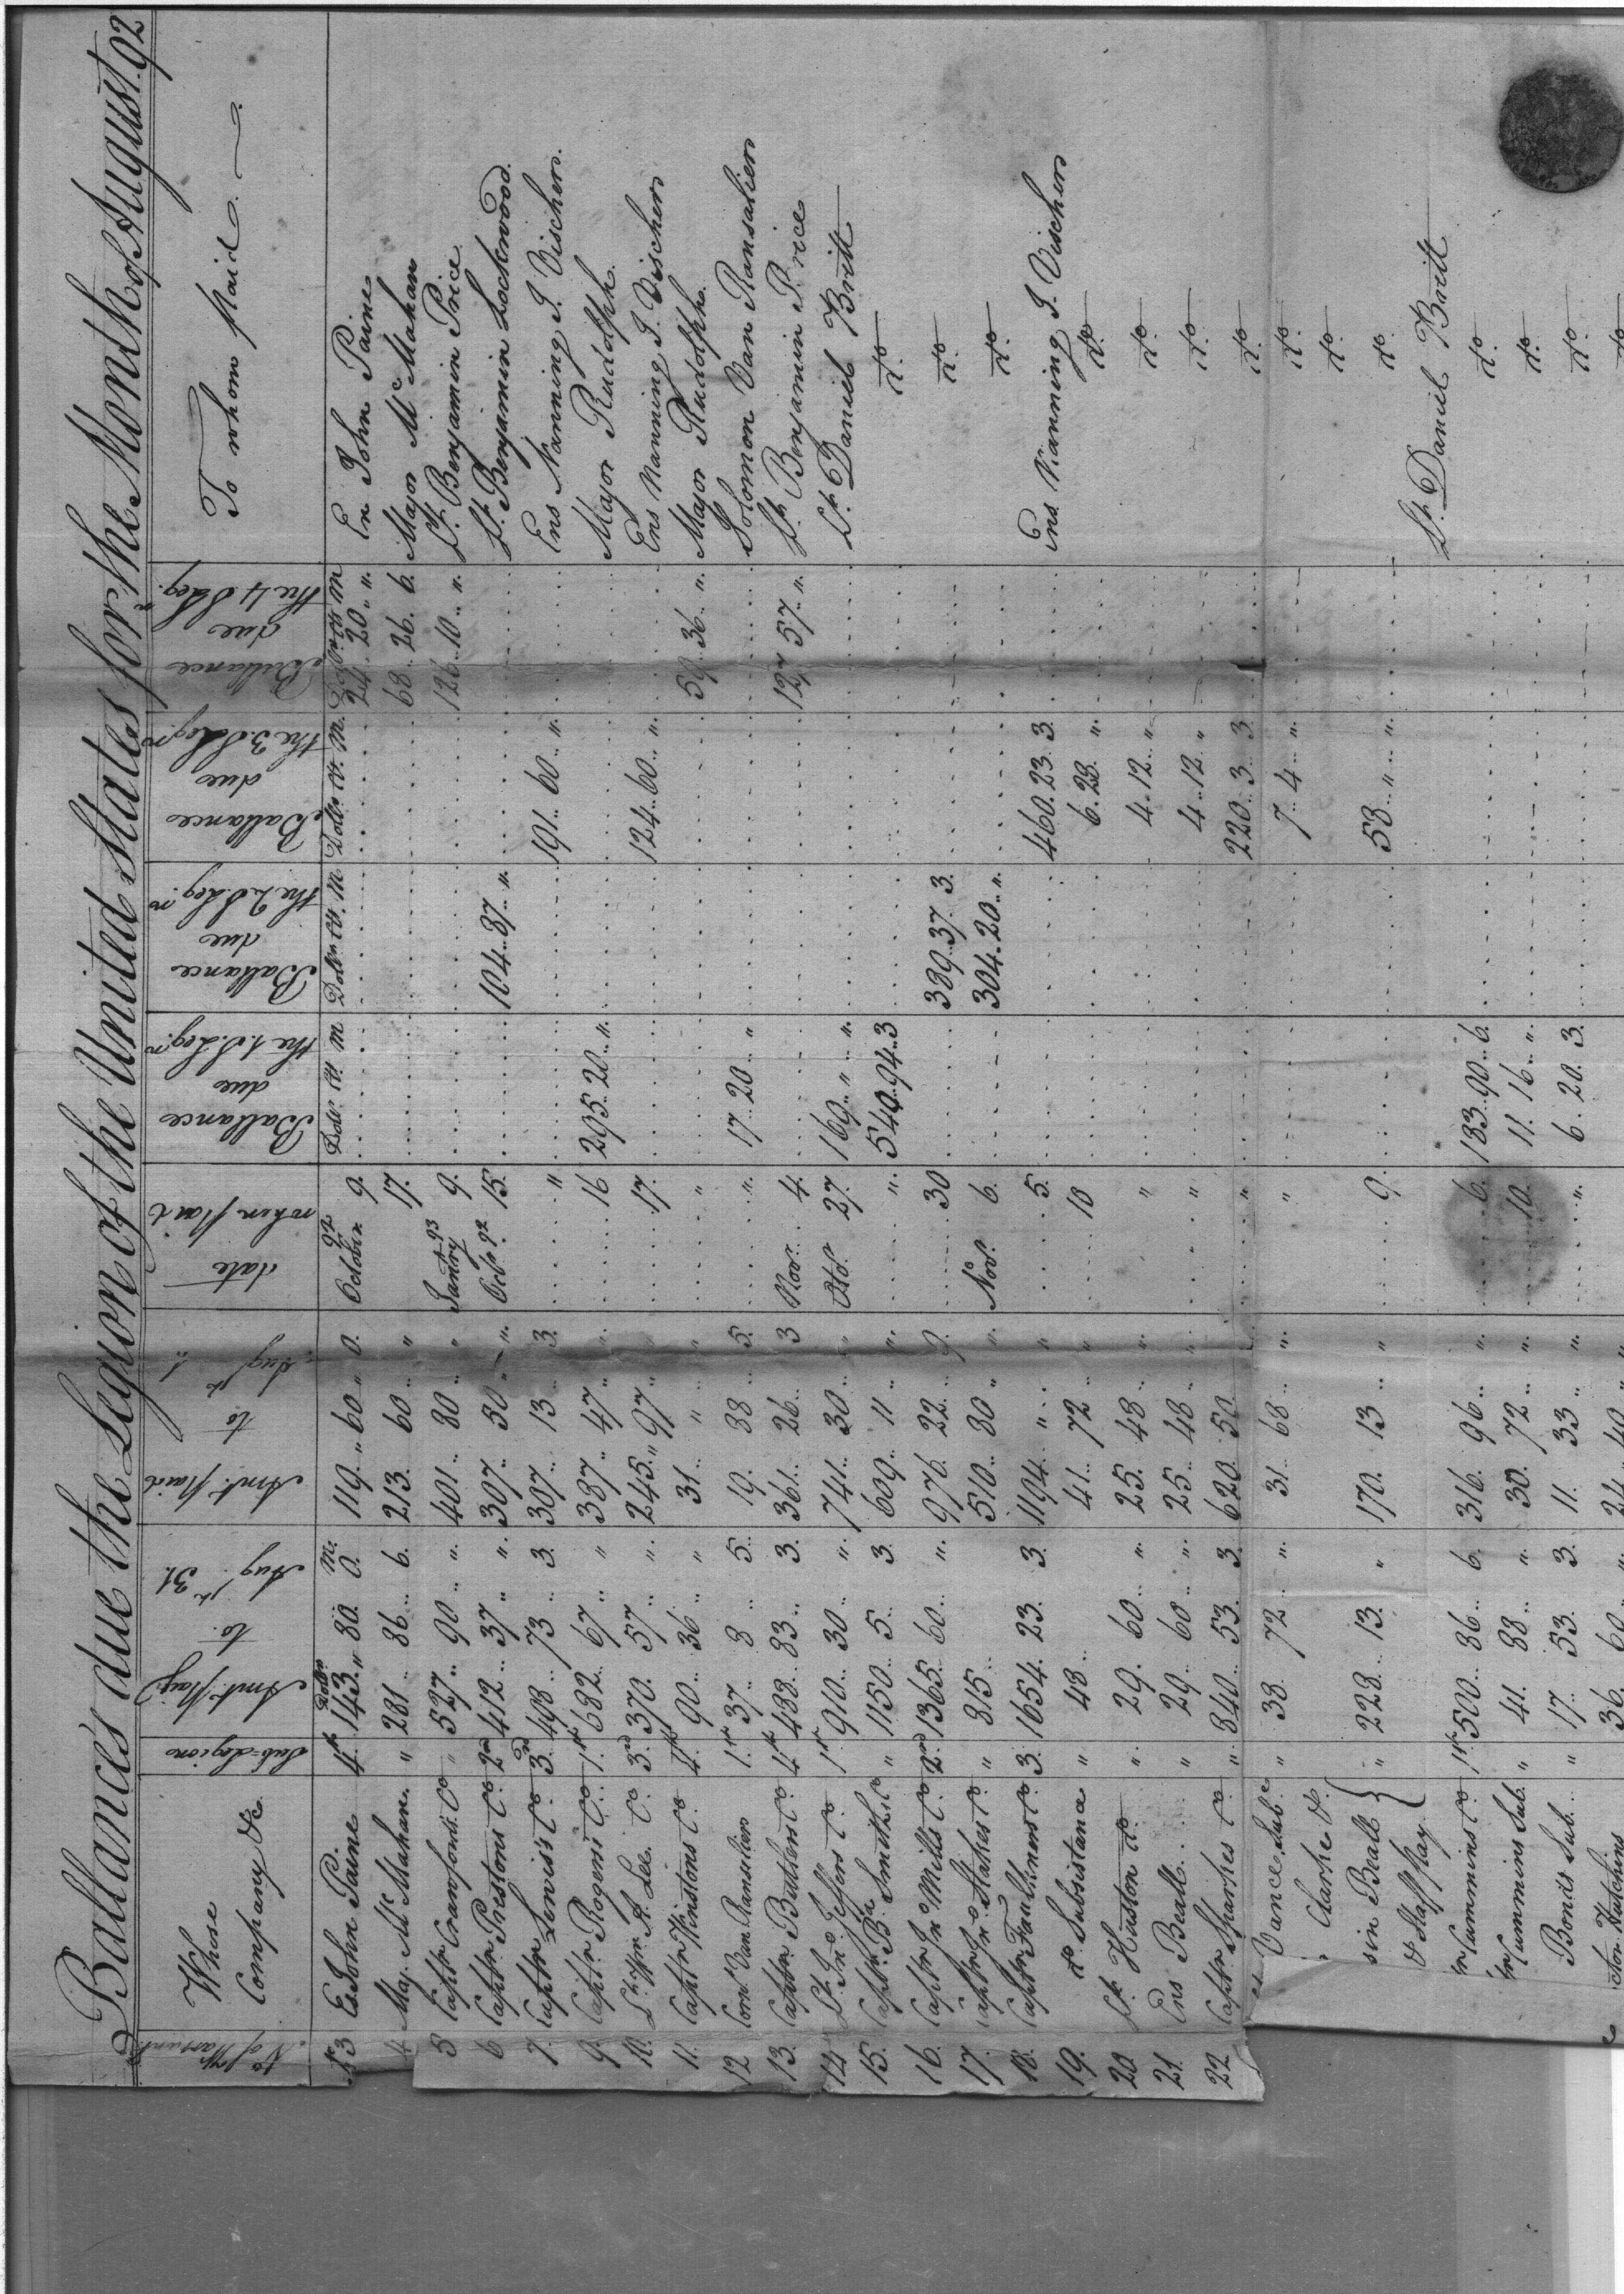 Ballances due the Legion of the United States for the Month of August 92
No of Warrants
Whose Company &c.
Sub-Legions
Amt. Pay to Augt 31
Amt. Paid to Augt
date when paid
Ballance due the 1. S. Legn
Ballance due the 2 S. Legn
Ballance due the 3. S. Legn
Ballance due the 4 S Legn
To whom paid.
Dolls m. Dolls. Ct. M Dolls Ct. M Dolls Ct. M. Dolls Cts M
No 3 Es. John Paine 4th 143 " 80. 0. 119 " 60 " 0. October 92 9. 24. 20 " En John Paine
4 Maj. McMahan " 281 .. 86 .. 6. 213. 60 .. " 17. 68 .. 26. 6. Major McMahan
5 Captn Crawfords Co " 527 .. 90 .. " 401 .. 80 .. " Janry 93 9. 126. 10 .. " Lt. Benjamin Price
6 Captn Prestons Co. 2nd 412 .. 37 .. " 307 .. 50 .. " Octr 92 15. 104 .. 87 .. " Lt. Benjamin Lockwood.
7. Captn Serviss Co 3rd 498 .. 73 .. 3. 307 .. 13 .. 3. " 191 .. 60 .. " Ens Nanning J. Vischers.
9. Captn Rogers's Co. 1st 682 .. 67 .. " 387 .. 47 .. " 16 295 .. 20 .. " Major Rudolph.
10. Lt. Wm. A. Lee. Co. 3rd 370. 57 .. " 245 .. 97 .. " 17. 124 .. 60 .. " Ens Nanning J. Vischers
11. Captn Winstons Co. 4th 90 .. 36 .. " 31 .. " " " 59 .. 36 .. " Major Rudolph.
12 Cornt Van Ranselien 1st 37 .. 8 .. 5. 19. 88 .. 5. " 17 .. 20 .. " Solomon Van Ransalien
13. Captn Butlers Co. 4th 488 .. 83 .. 3. 361 .. 26 .. 3 Novr. 4. 127 .. 57 .. " Lt. Benjamin Price
14 Lt. Jno. Jeffers Co. 1st 910 .. 30 .. " 741 .. 30 .. " Octr. 27. 169 .. " .. " Lt. Daniel Britt
15. Captn Bn Smiths Co " 1150 .. 5 .. 3. 609 .. 11 .. " " 540 .. 94 .. 3 do.
16. Captn Jno Mills Co 2nd 1365 .. 60 .. " 976. 22 .. 9. 30 389 .. 37. 3. do.
17. Captn Jno Stakes Co " 815 .. 510 .. 80 .. " Novr. 6. 304 .. 20 .. " do.
18. Captn Faulkners Co. 3. 1654. 23. 3. 1194 .. " .. " 5. 460. 23. 3. Ens Nanning J. Vischers
19. do Subsistance " 48 .. 41 .. 72 .. " 10 6 .. 28. " do.
20 Lt. Huston do. " 29 .. 60 .. " 25. 48 .. " " 4 .. 12 .. " do.
21. Ens Beall " 29 .. 60 .. " 25 .. 48 .. " " 4 .. 12 .. " do.
22. Captn Sparkes Co. " 840 .. 53 .. 3. 620. 50 " 220 .. 3. 3 do.
Vance Sub. " 38. 72 .. " 31 .. 68 .. " " 7 .. 4 .. " do.
Clarke do. do.
sin Beall & Staff Pay } " 228 .. 13. " 170. 13 .. " 9. 58 .. " .. " do.
Lt. Daniel Britt
Cummins Co 1st 500 .. 86 .. 6. 316. 96 .. " 6. 183 .. 90 .. 6. do.
Cummins Sub. " 41. 88 .. " 30. 72 .. " 10. 11. 16 .. " do.
Bonds Sub. " 17. 53. 3. 11. 33 .. " " 6. 20. 3. do.
Hutchins 36. 60 .. " 24 .. 40 .. " do